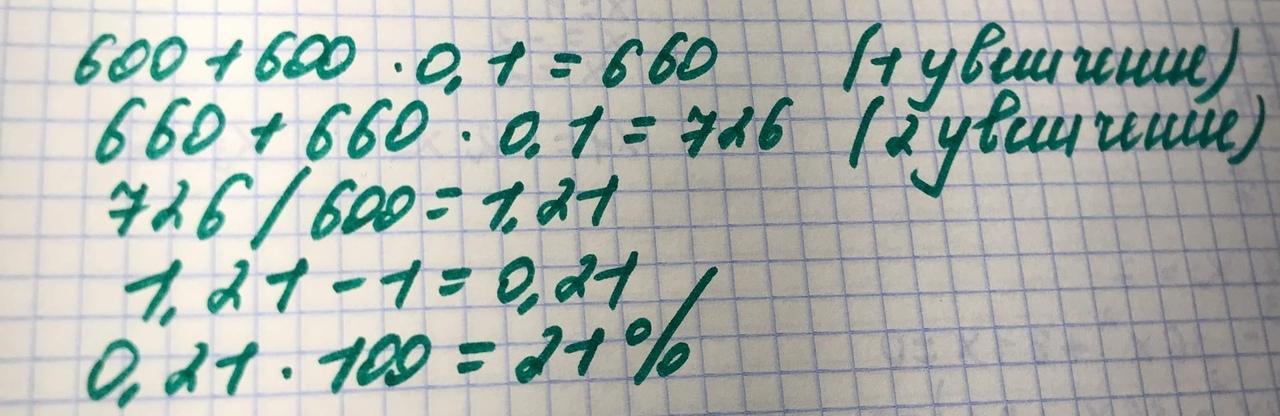 600 + 600 · 0,1 = 660 (1 увеличение)
660 + 660 · 0,1 = 726 (2 увеличение)
726 / 600 = 1,21
1,21 - 1 = 0,21
0,21 · 100 = 21%